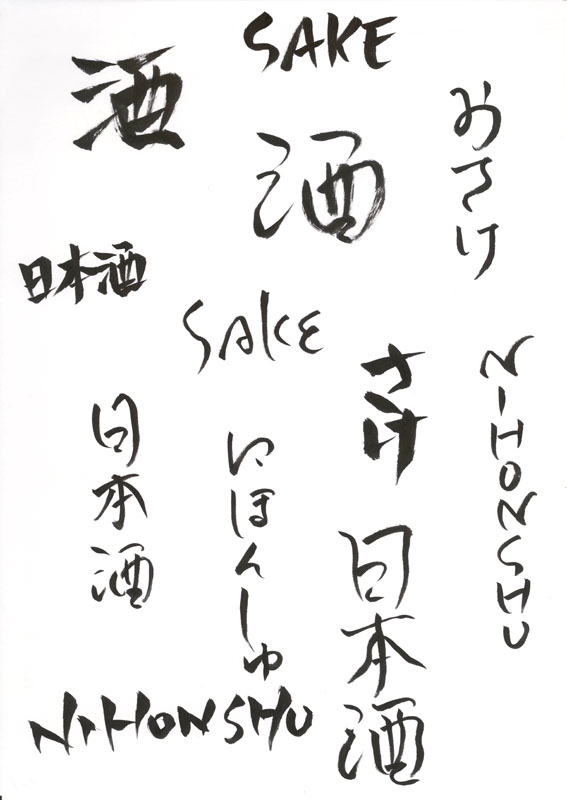 SAKE
酒
酒
おさけ
日本酒
SAKE
さけ
NIHONSHU
日本酒
にほんしゅ
日本酒
NIHONSHU